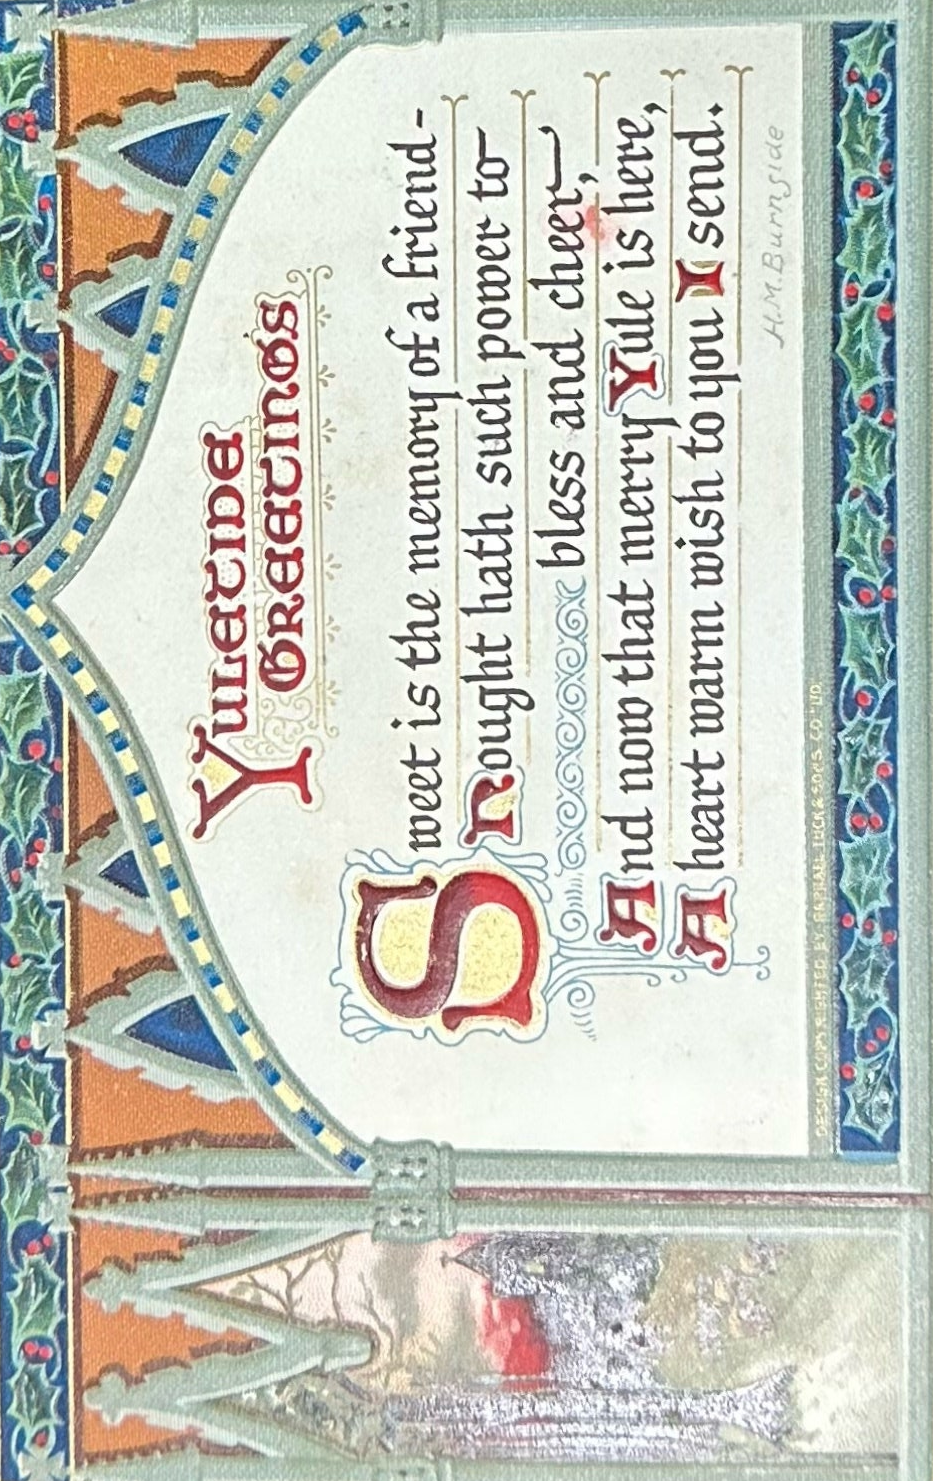 Yuletide
Greetings
Sweet is the memory of a friend-
Nought hath such power to
bless and cheer,
And now that merry Yule is here,
A heart warm wish to you I send.
H.M. Burnside
DESIGN COPYRIGHTED BY RAPHAEL TUCK & SONS CO. LTD.